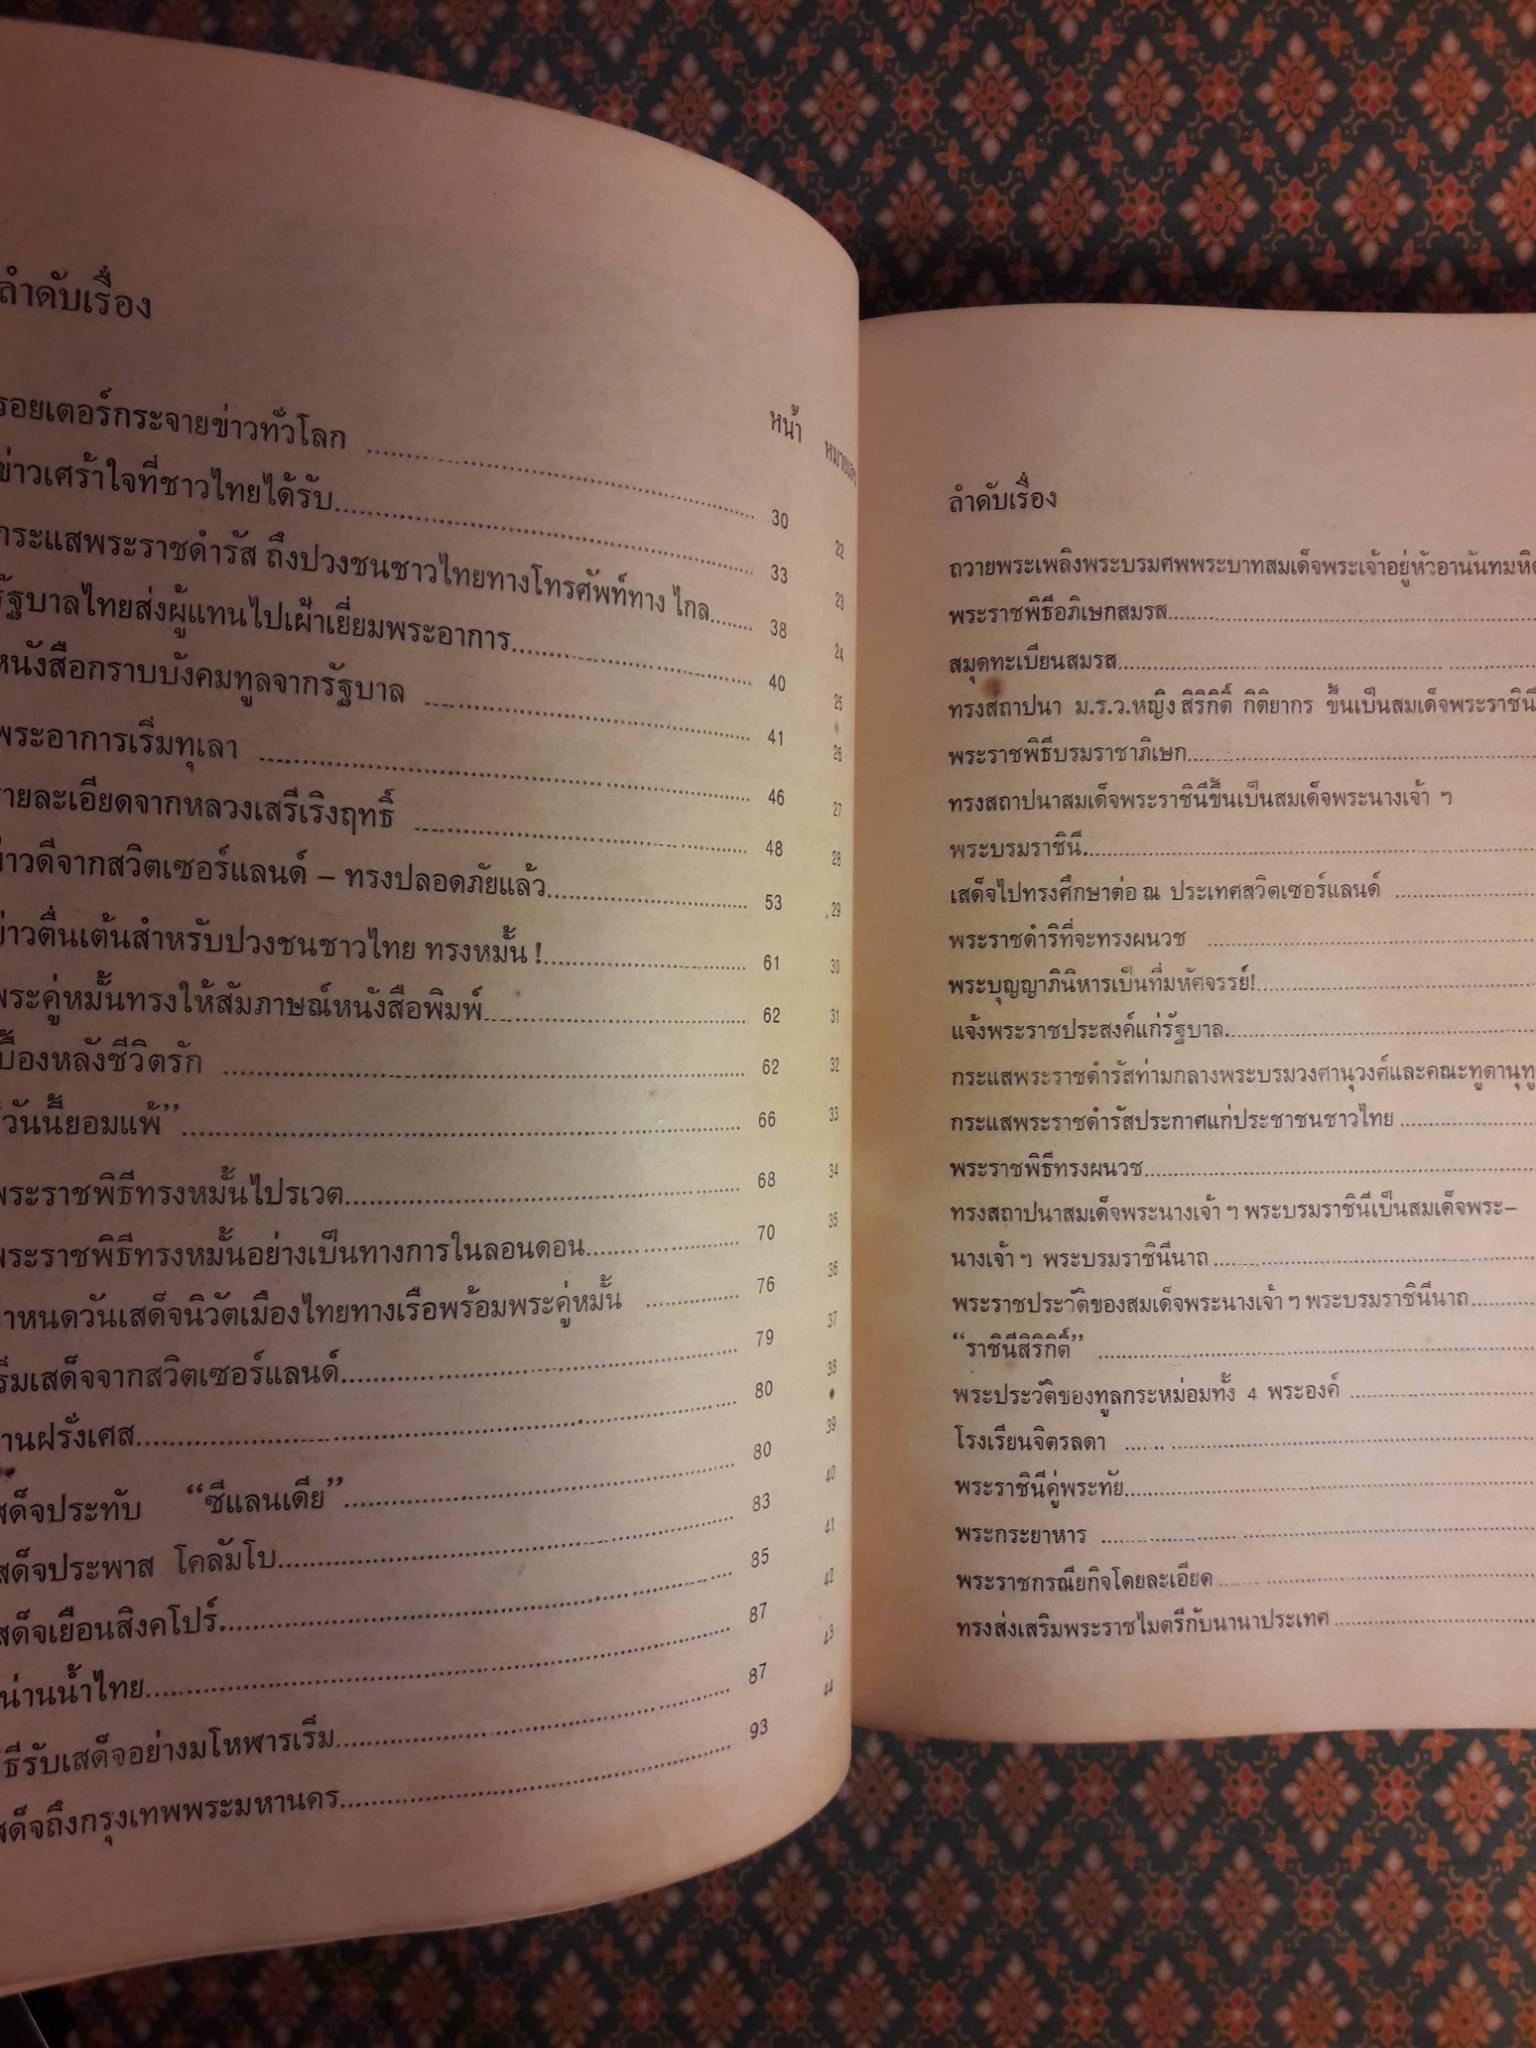 ลำดับเรื่อง
หน้า
รอยเตอร์กระจายข่าวทั่วโลก 30
ข่าวเศร้าใจที่ชาวไทยได้รับ 33
กระแสพระราชดำรัส ถึงปวงชนชาวไทยทางโทรศัพท์ทาง ไกล 38
รัฐบาลไทยส่งผู้แทนไปเฝ้าเยี่ยมพระอาการ 40
หนังสือกราบบังคมทูลจากรัฐบาล 41
พระอาการเริ่มทุเลา 46
รายละเอียดจากหลวงเสรีเริงฤทธิ์ 48
ข่าวดีจากสวิตเซอร์แลนด์ – ทรงปลอดภัยแล้ว 53
ข่าวตื่นเต้นสำหรับปวงชนชาวไทย ทรงหมั้น ! 61
พระคู่หมั้นทรงให้สัมภาษณ์หนังสือพิมพ์ 62
เบื้องหลังชีวิตรัก 62
วันนี้ยอมแพ้” 66
พระราชพิธีทรงหมั้นไปรเวต 68
พระราชพิธีทรงหมั้นอย่างเป็นทางการในลอนดอน 70
กำหนดวันเสด็จนิวัตเมืองไทยทางเรือพร้อมพระคู่หมั้น 76
เริ่มเสด็จจากสวิตเซอร์แลนด์ 79
ผ่านฝรั่งเศส 80
เสด็จประทับ “ซีแลนเดีย” 80
เสด็จประพาส โคลัมโบ 83
เสด็จเยือนสิงคโปร์ 85
น่านน้ำไทย 87
พิธีรับเสด็จอย่างมโหฬารเริ่ม 87
เสด็จถึงกรุงเทพพระมหานคร 93
22
23
24
25
26
27
28
29
30
31
32
33
34
35
36
37
38
39
40
41
42
43
44
ลำดับเรื่อง
ถวายพระเพลิงพระบรมศพพระบาทสมเด็จพระเจ้าอยู่หัวอานันทมหิด
พระราชพิธีอภิเษกสมรส
สมุดทะเบียนสมรส
ทรงสถาปนา ม.ร.ว.หญิง สิริกิติ์ กิติยากร ขึ้นเป็นสมเด็จพระราชินี
พระราชพิธีบรมราชาภิเษก
ทรงสถาปนาสมเด็จพระราชินีขึ้นเป็นสมเด็จพระนางเจ้า ฯ
พระบรมราชินี
เสด็จไปทรงศึกษาต่อ ณ ประเทศสวิตเซอร์แลนด์
พระราชดำริที่จะทรงผนวช
พระบุญญาภินิหารเป็นที่มหัศจรรย์!
แจ้งพระราชประสงค์แก่รัฐบาล
กระแสพระราชดำรัสท่ามกลางพระบรมวงศานุวงศ์และคณะทูตานุทู
กระแสพระราชดำรัสประกาศแก่ประชาชนชาวไทย
พระราชพิธีทรงผนวช
ทรงสถาปนาสมเด็จพระนางเจ้า ฯ พระบรมราชินีเป็นสมเด็จพระ–
นางเจ้า ฯ พระบรมราชินีนาถ
พระราชประวัติของสมเด็จพระนางเจ้า ฯ พระบรมราชินีนาถ
“ราชินีสิริกิติ์”
พระประวัติของทูลกระหม่อมทั้ง 4 พระองค์
โรงเรียนจิตรลดา
พระราชินีคู่พระทัย
พระกระยาหาร
พระราชกรณียกิจโดยละเอียด
ทรงส่งเสริมพระราชไมตรีกับนานาประเทศ